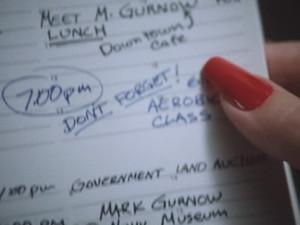 MEET M. GURNOW
LUNCH
Downtown
Cafe
7:00pm
DONT FORGET!
AEROBIC
CLASS
:00pm GOVERNMENT LAND AUC
MARK GURNOW
Museum